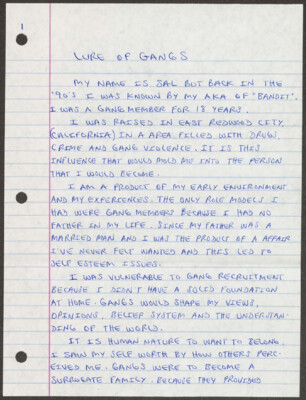 1
LURE OF GANGS
MY NAME IS SAL BUT BACK IN THE
'90'S I WAS KNOWN BY MY AKA OF "BANDIT".
I WAS A GANG MEMBER FOR 18 YEARS.
I WAS RAISED IN EAST REDWOOD CITY,
(CALIFORNIA) IN A AREA FILLED WITH DRUGS,
CRIME AND GANG VIOLENCE. IT IS THIS
INFLUENCE THAT WOULD MOLD ME INTO THE PERSON
THAT I WOULD BECOME.
I AM A PRODUCT OF MY EARLY ENVIRONMENT
AND MY EXPERIENCES. THE ONLY ROLE MODELS I
HAD WERE GANG MEMBERS BECAUSE I HAD NO
FATHER IN MY LIFE. SINCE MY FATHER WAS A
MARRIED MAN AND I WAS THE PRODUCT OF A AFFAIR
I'VE NEVER FELT WANTED AND THIS LED TO
SELF ESTEEM ISSUES.
I WAS VULNERABLE TO GANG RECRUITMENT
BECAUSE I DIDN'T HAVE A SOLID FOUNDATION
AT HOME. GANGS WOULD SHAPE MY VIEWS,
OPINIONS, BELIEF SYSTEM AND THE UNDERSTAN-
DING OF THE WORLD.
IT IS HUMAN NATURE TO WANT TO BELONG.
I SAW MY SELF WORTH BY HOW OTHERS PERC-
EIVED ME. GANGS WERE TO BECOME A
SURROGATE FAMILY. BECAUSE THEY PROVIDED